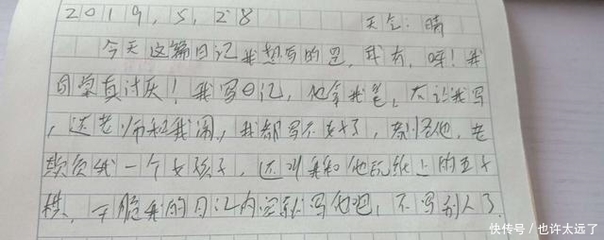 2019,5,28 天气:晴
今天这篇日记我想写的是,我有,呀!我
同桌真讨厌!我写日记,他拿我笔,不让我写
,还老师和我闹,我都写不好了,都怪他,老
欺负我一个女孩子,还叫我和他玩纸上的五子
棋,干脆我的日记内容就写他吧,不写别人了
快传号/也许太远了